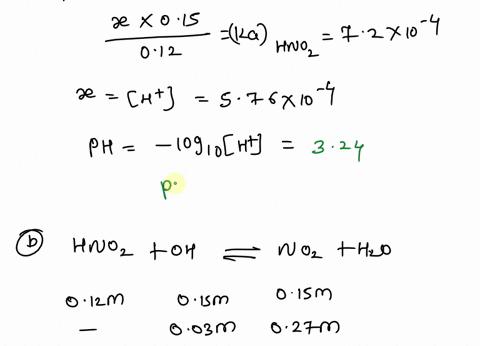 x × 0.15
0.12
=(Ka) HNO2 = 7.2×10-4
x = [H+] = 5.76×10-4
PH = -log10[H+] = 3.24
p.
b HNO2 + OH ⇌ NO2 + H2O
0.12m 0.15m 0.15m
— 0.03m 0.27m